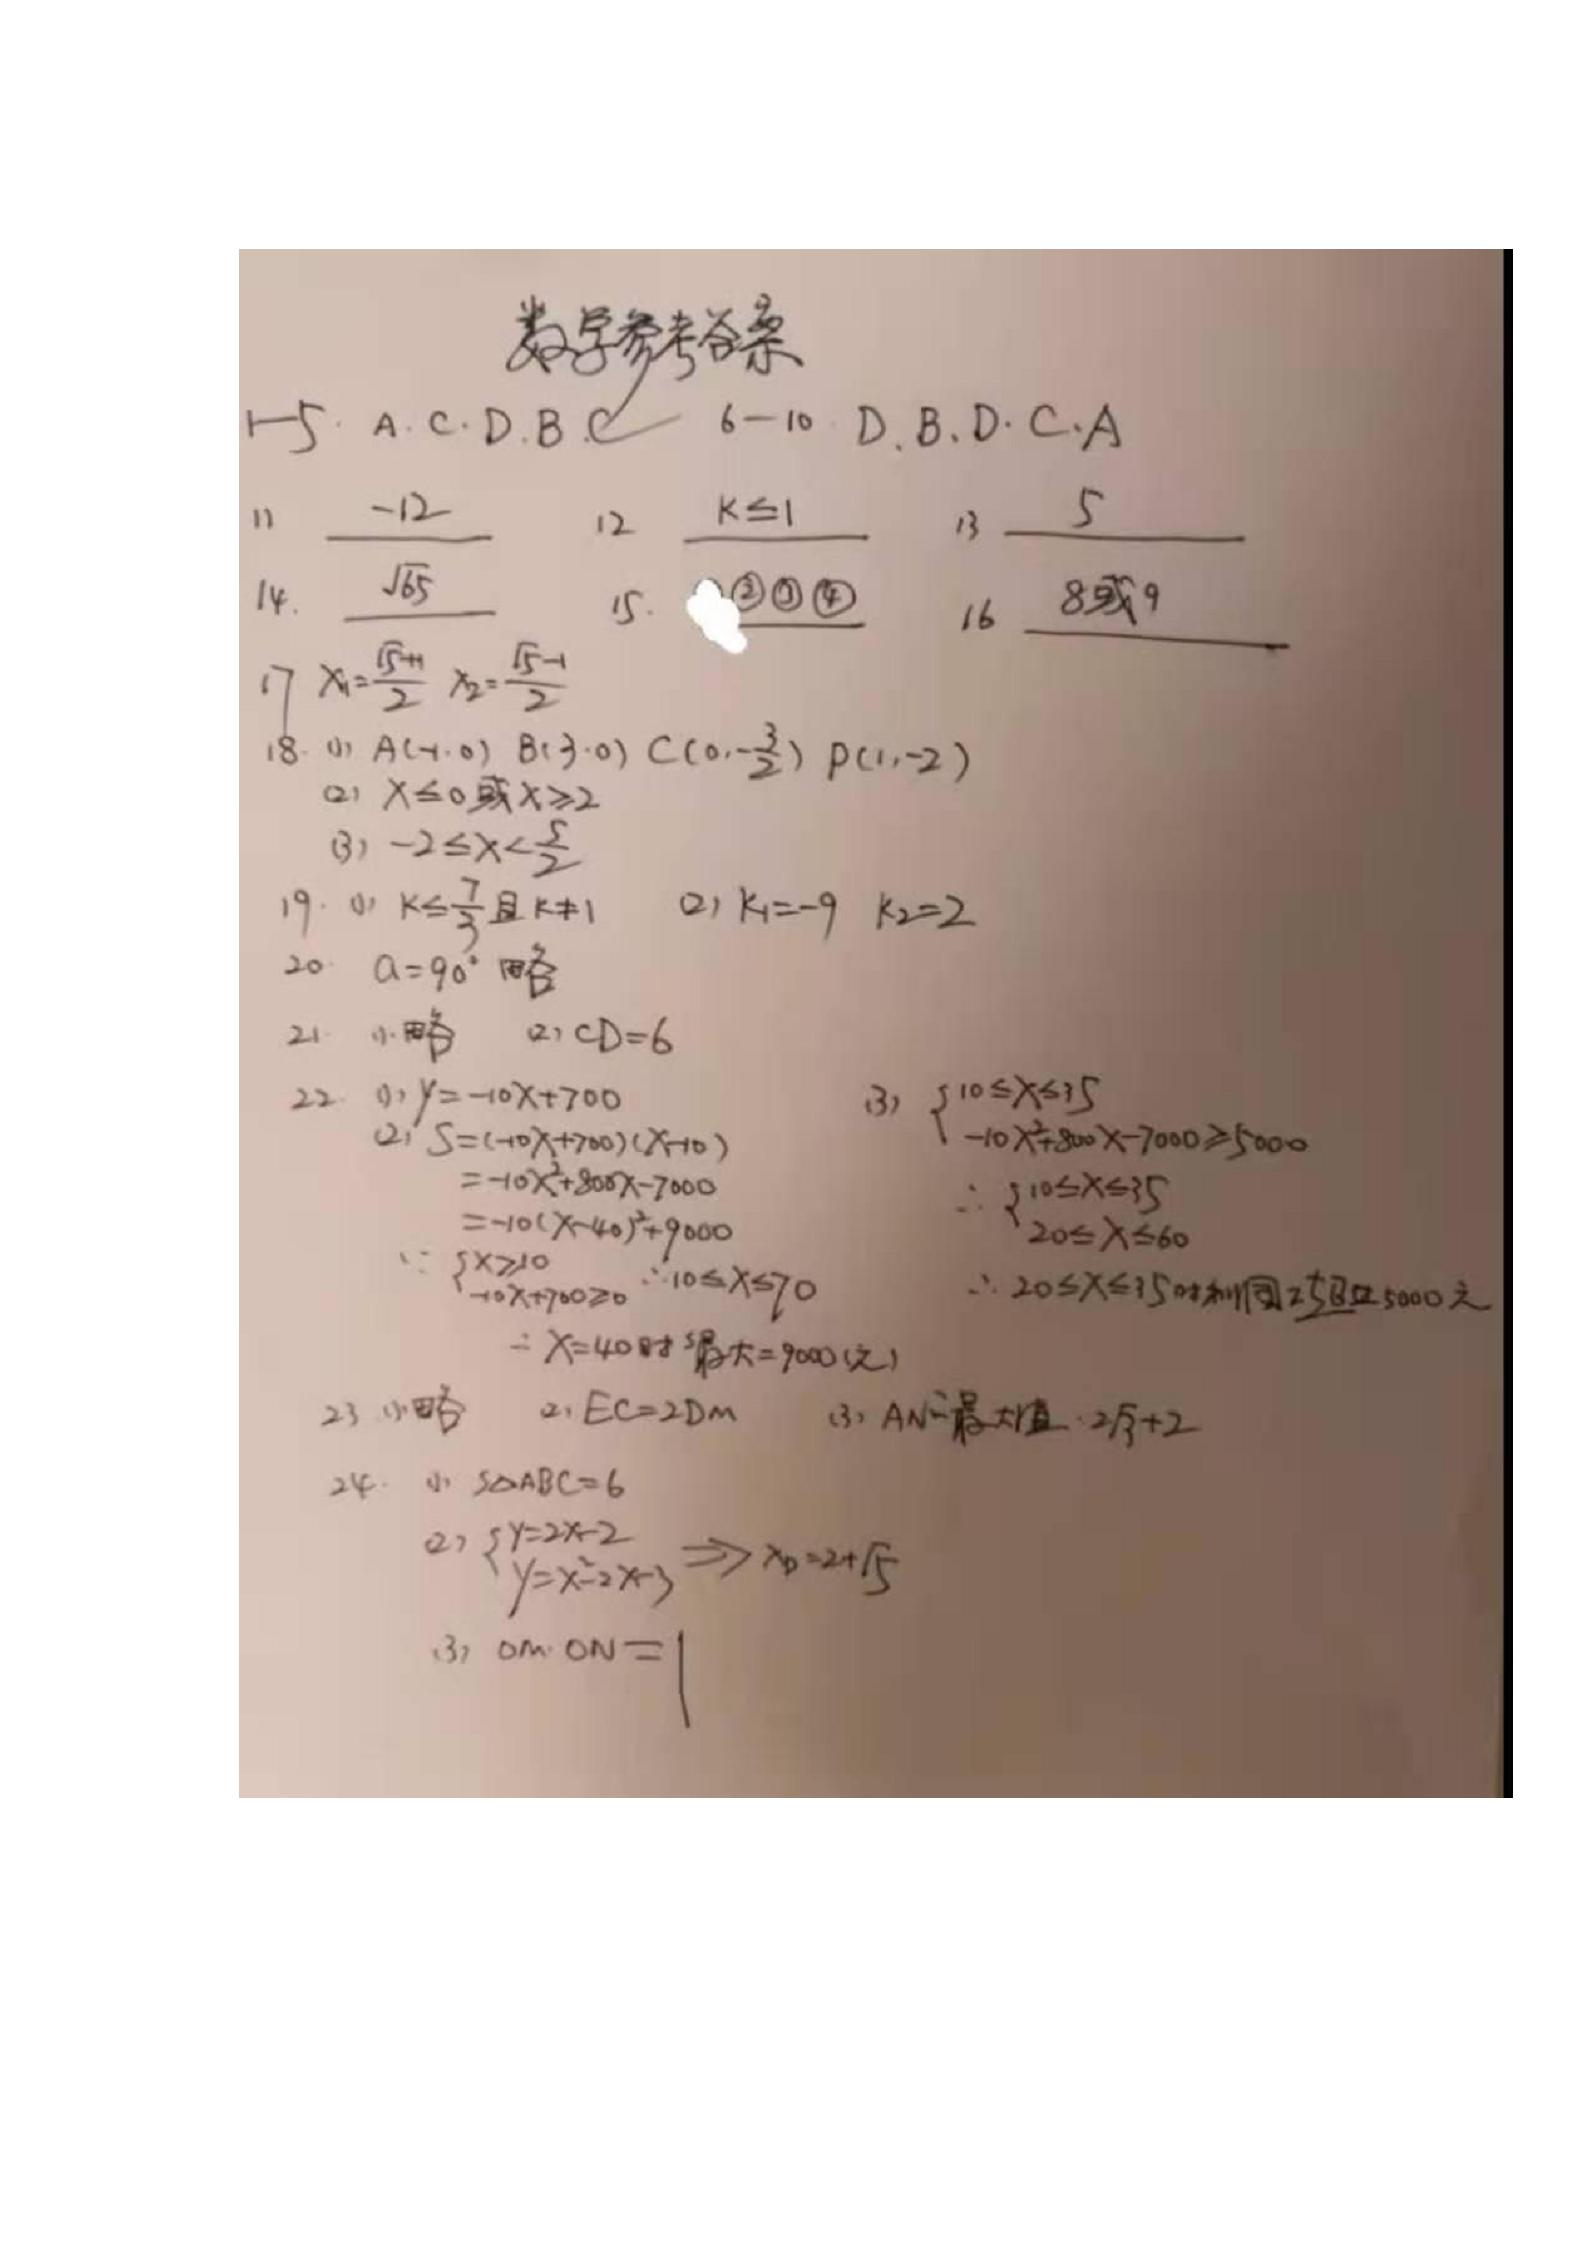 数学参考答案
1—5. A. C. D. B. C 6—10. D. B. D. C. A
11 -12 12 K≤1 13 5
14. √65 15. ②③④ 16 8或9
17 X₁=(√5+1)/2 X₂=(√5-1)/2
18. (1) A(-1.0) B(3.0) C(0,-3/2) P(1,-2)
(2) X≤0或X≥2
(3) -2≤X<5/2
19. (1) K≤7/3且K≠1 (2) K₁=-9 K₂=2
20. a=90° 略
21. (1) 略 (2) CD=6
22. (1) Y=-10X+700
(2) S=(-10X+700)(X-10)
=-10X²+800X-7000
=-10(X-40)²+9000
∵ {X≥10
-10X+700≥0 ∴10≤X≤70
∴ X=40时 S最大=9000(元)
(3) {10≤X≤35
-10X²+800X-7000≥5000
∴ {10≤X≤35
20≤X≤60
∴ 20≤X≤35时利润不5000元
23 (1) 略 (2) EC=2DM (3) AN最大值 2√3+2
24. (1) S△ABC=6
(2) {Y=2X-2
Y=X²-2X-3 ⇒ X_D=2+√5
(3) OM·ON=1